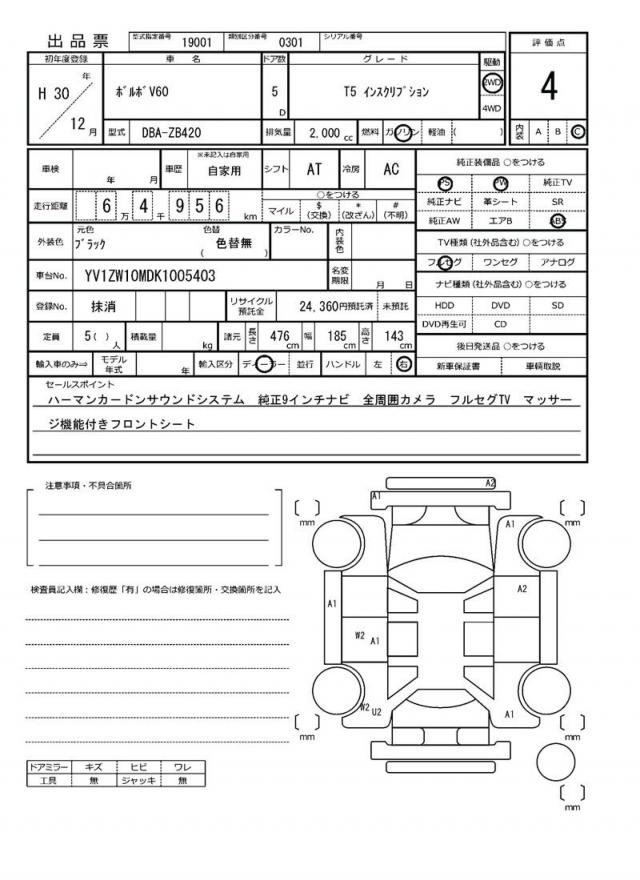 出品票 型式指定番号 19001 類別区分番号 0301 シリアル番号
初年度登録 車 名 ドア数 グレード 駆動 評価点
H 30 年 12 月 ﾎﾞﾙﾎﾞV60 5 D T5 インスクリプション 2WD 4WD 4
型式 DBA-ZB420 排気量 2,000 cc 燃料 ガソリン 軽油 ( ) 内装 A B C
※未記入は自家用
車検 年 月 車歴 自家用 シフト AT 冷房 AC 純正装備品 ○をつける
PS PW 純正TV
走行距離 6 万 4 千 9 5 6 km ○をつける
マイル $ (交換) * (改ざん) # (不明)
純正ナビ 革シート SR
純正AW エアB ABS
外装色 元色 ﾌﾞﾗｯｸ 色替 ( 色替無 ) カラーNo. 内装色
TV種類 (社外品含む) ○をつける
フルセグ ワンセグ アナログ
車台No. YV1ZW10MDK1005403 名変期限 月 日
ナビ種類 (社外品含む) ○をつける
登録No. 抹消 リサイクル預託金 24,360円預託済 未預託
HDD DVD SD
DVD再生可 CD
定員 5( ) 人 積載量 kg 諸元 長さ 476 cm 幅 185 cm 高さ 143 cm
後日発送品 ○をつける
輸入車のみ⇒ モデル年式 年 輸入区分 ディーラー 並行 ハンドル 左 右 新車保証書 車輌取説
セールスポイント
ハーマンカードンサウンドシステム 純正9インチナビ 全周囲カメラ フルセグTV マッサー
ジ機能付きフロントシート
注意事項・不具合箇所
A2
A1
mm mm
A1
検査員記入欄：修復歴「有」の場合は修復箇所・交換箇所を記入
A2
A1
W2 A1
W2 U2 A1
mm mm
ドアミラー キズ ヒビ ワレ
工具 無 ジャッキ 無
mm